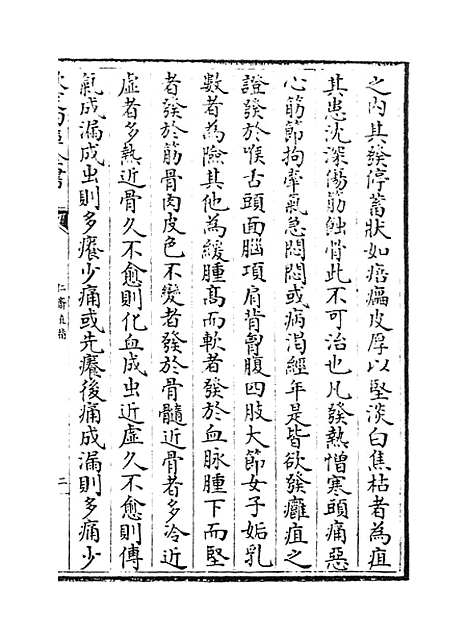 之内其發停蓄狀如痞癟皮厚以堅淡白焦枯者為疽
其患沈深傷筋蝕骨此不可治也凡發熱憎寒頭痛惡
心筋節拘攣氣急悶悶或病渴經年是皆欲發癰疽之
證發於喉舌頭面腦項肩背胷腹四肢大節女子妬乳
數者為險其他為緩腫髙而軟者發於血脉腫下而堅
者發於筋骨肉皮色不變者發於骨髓近骨者多冷近
虛者多熱近骨久不愈則化血成虫近虛久不愈則傳
氣成漏成虫則多癢少痛或先癢後痛成漏則多痛少
仁齋直指
二